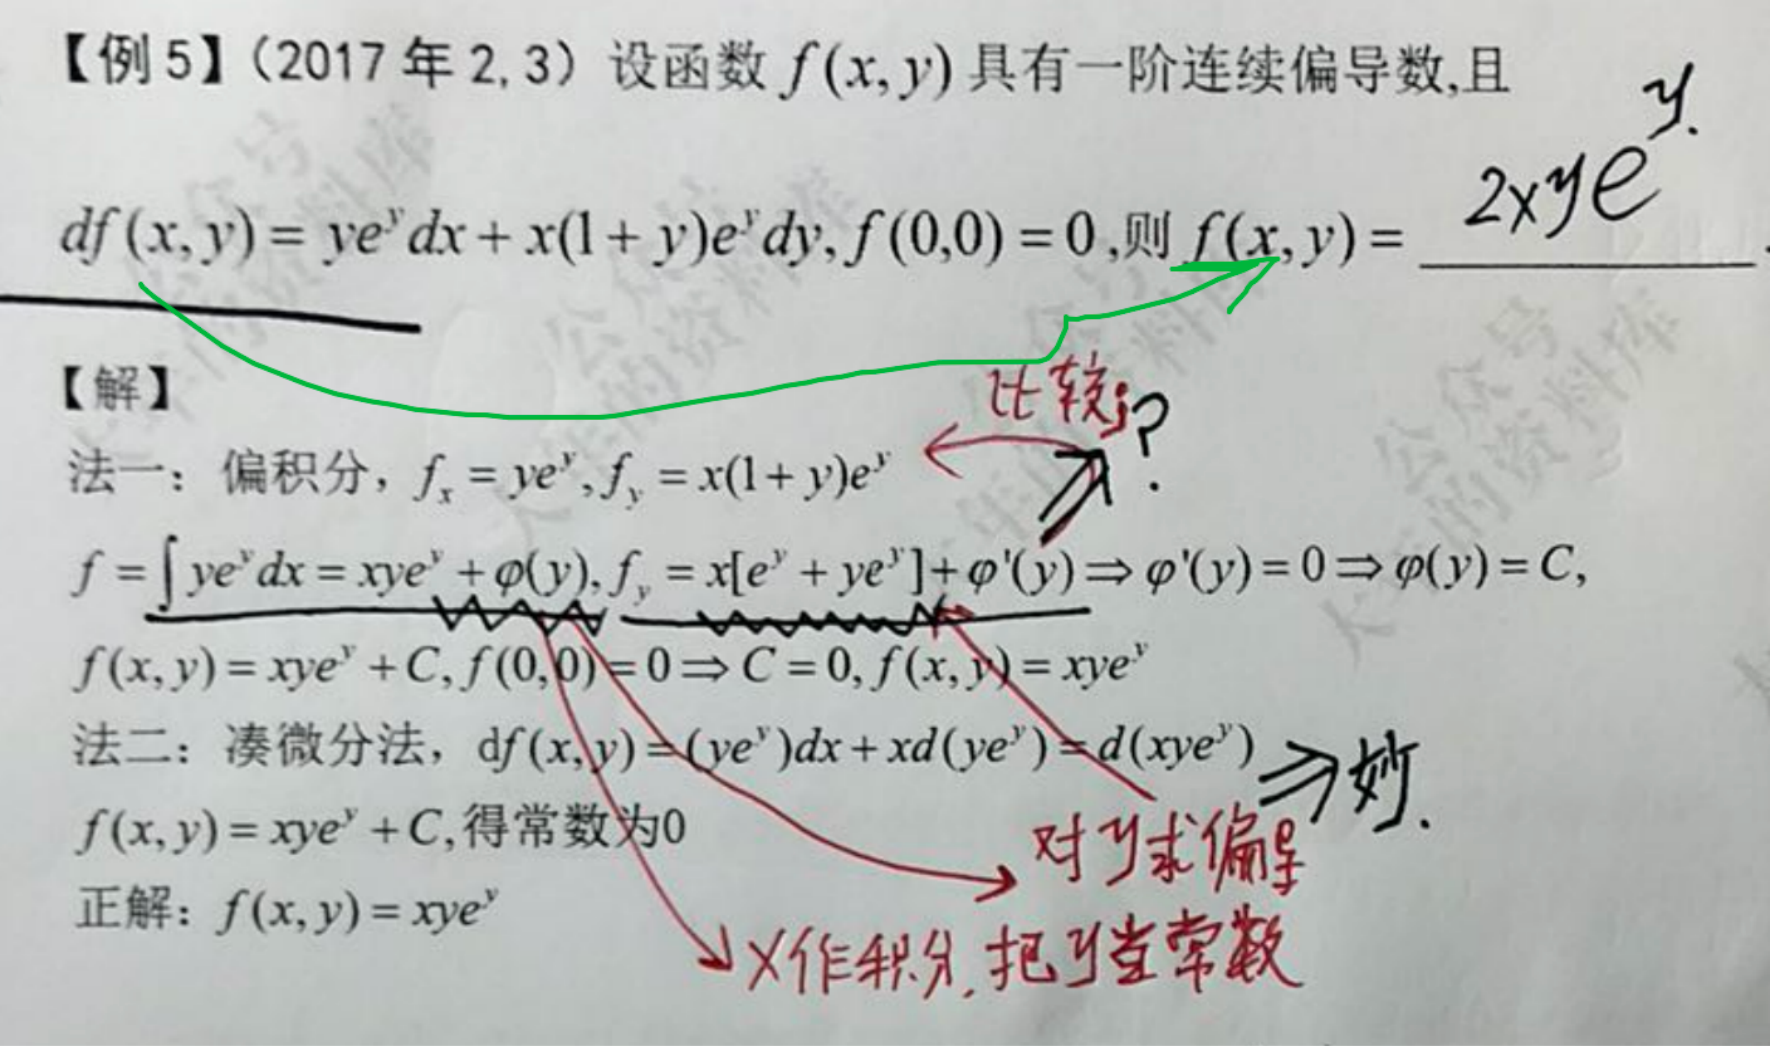 【例5】（2017年2,3）设函数 f(x,y) 具有一阶连续偏导数,且
df(x,y) = ye^y dx + x(1+y)e^y dy, f(0,0) = 0 ,则 f(x,y) = 2xye^y.
【解】
比较;?
法一：偏积分，f_x = ye^y, f_y = x(1+y)e^y
f = ∫ye^y dx = xye^y + φ(y), f_y = x[e^y + ye^y] + φ'(y) ⇒ φ'(y) = 0 ⇒ φ(y) = C,
f(x,y) = xye^y + C, f(0,0) = 0 ⇒ C = 0, f(x,y) = xye^y
法二：凑微分法，df(x,y) = (ye^y)dx + xd(ye^y) = d(xye^y) ⇒ 妙.
f(x,y) = xye^y + C,得常数为0
对y求偏导
正解：f(x,y) = xye^y
X作积分,把y当常数
公众号
的资料库
公众号
的资料库
公众号
的资料库